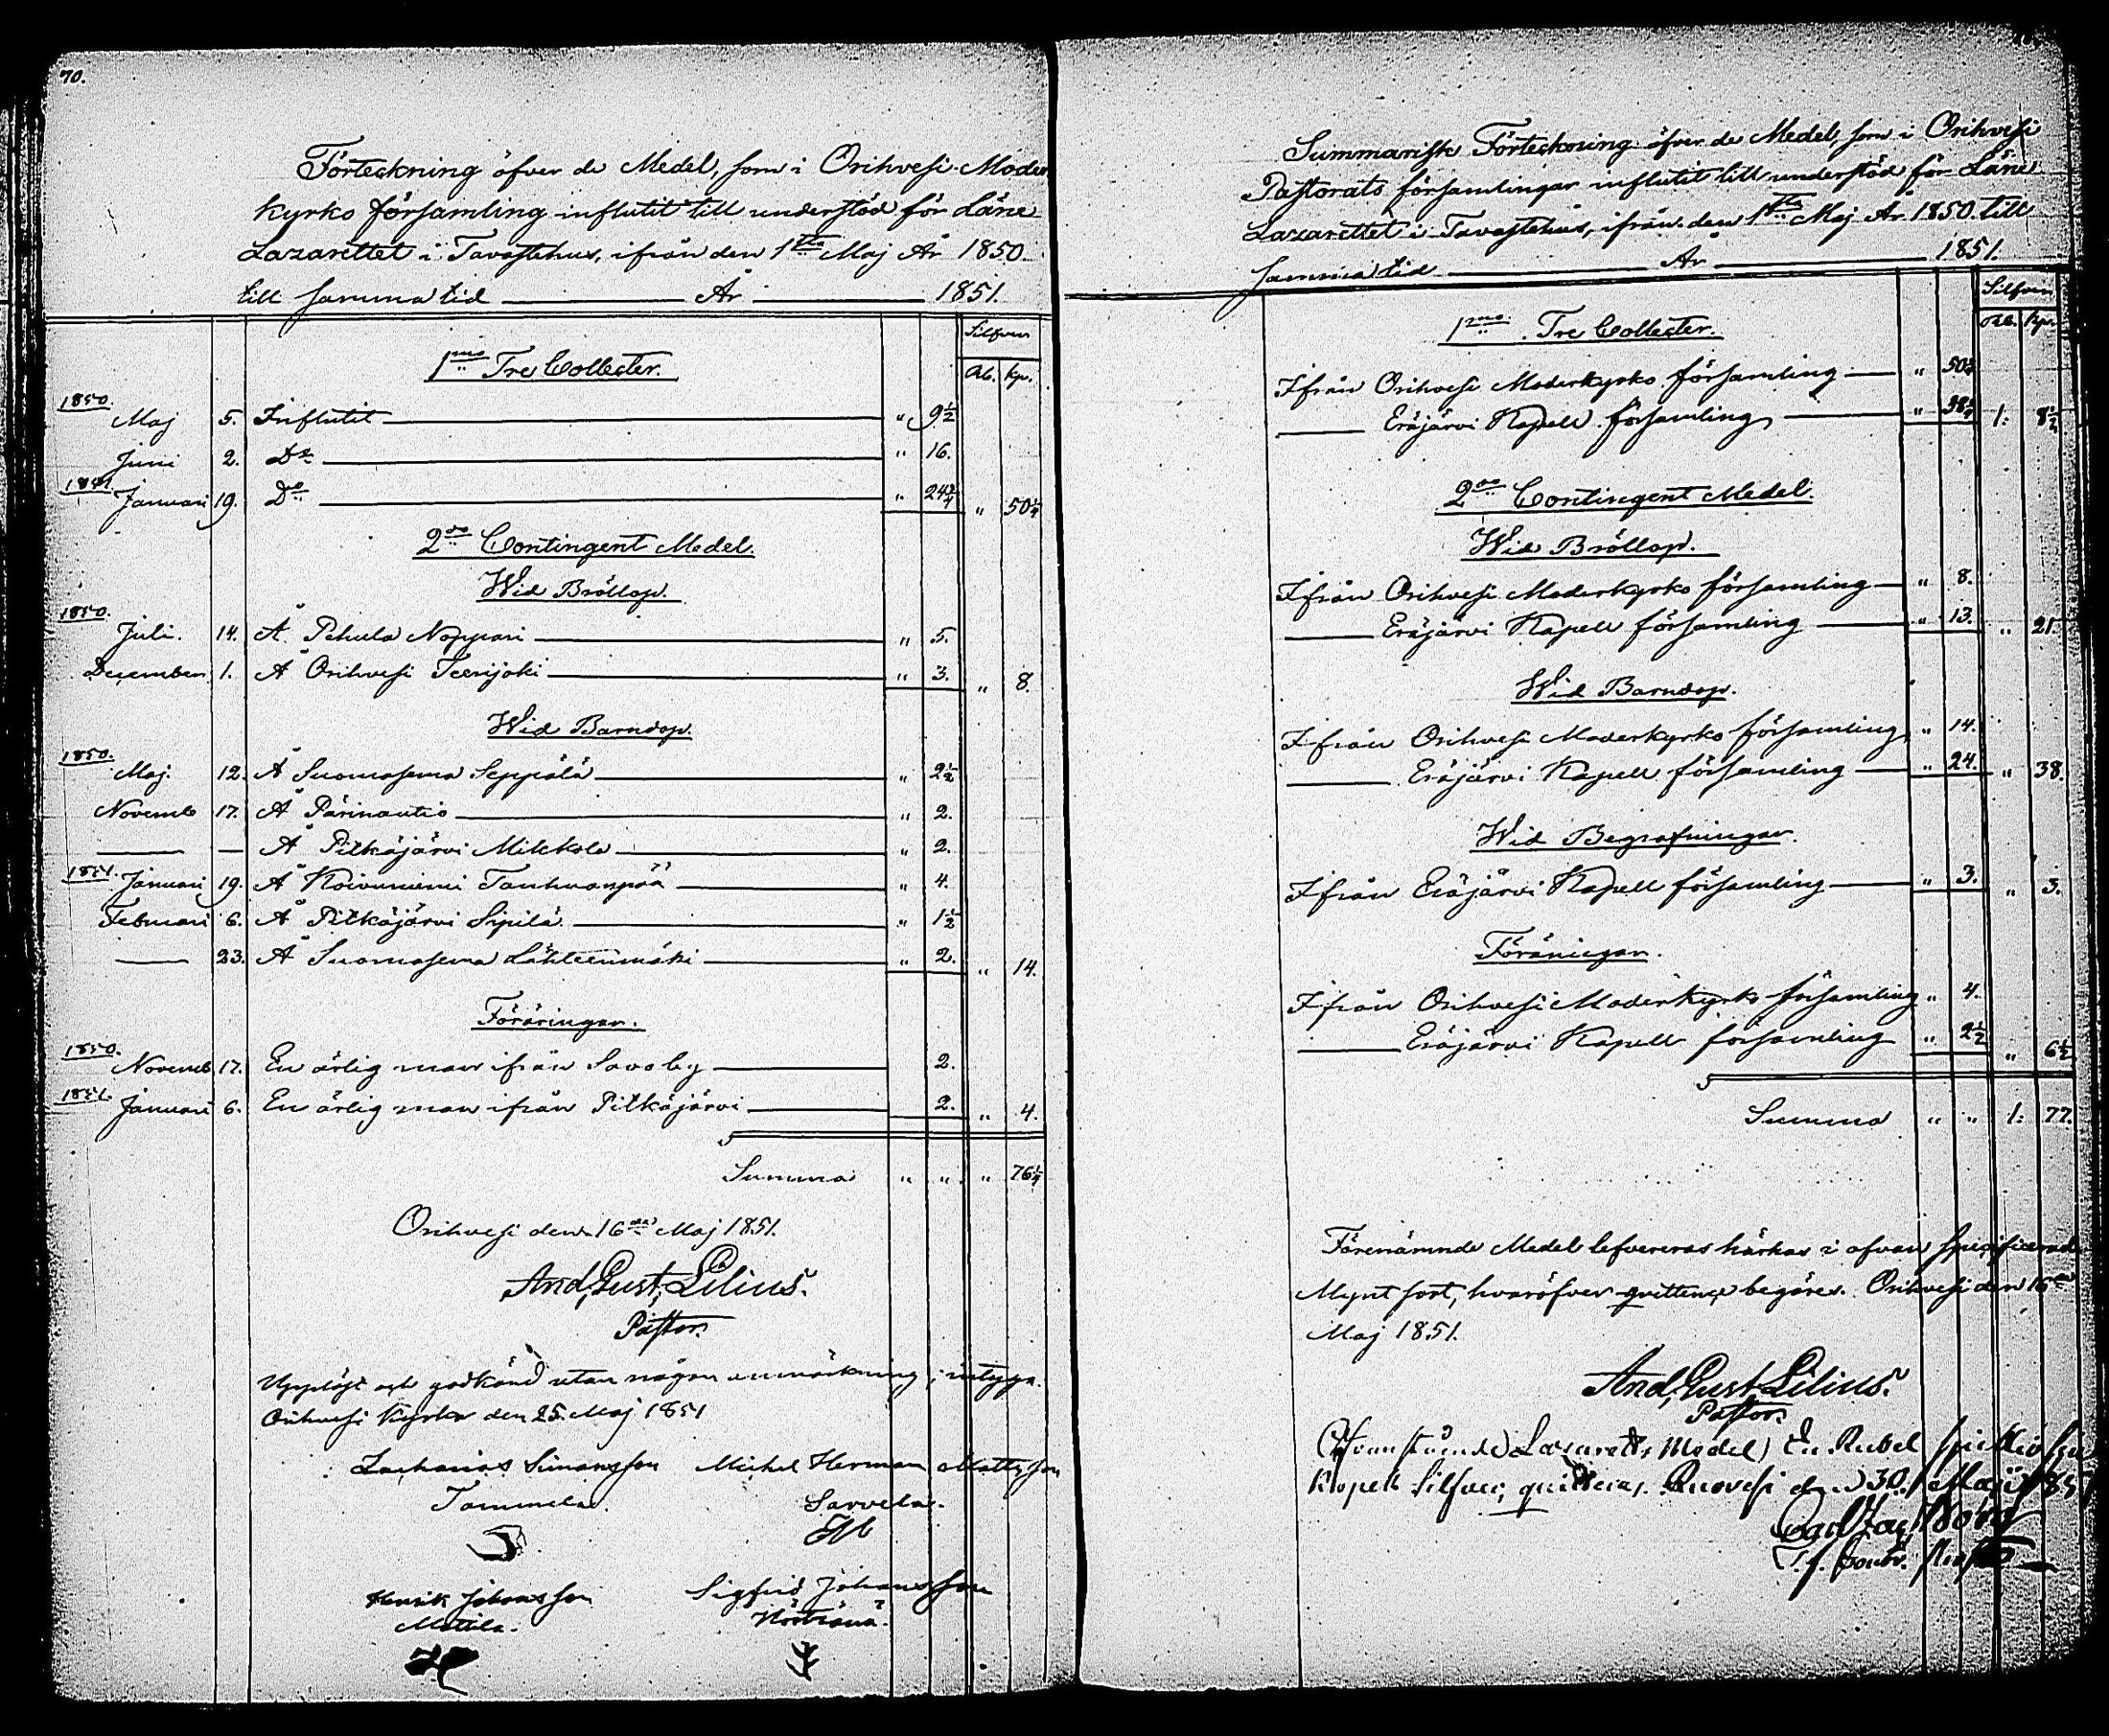 70.
Förteckning öfver de Medel, som i Orihvesi Moder
Kyrko församling influtit till understöd för Läns
Lazarettet i Tavastehus, ifrån den 1sta Maj År 1850
till samma tid ——— År ——— 1851.
Silfver
Rb. Kp.
1mo Tre Collecter.
1850.
Maj 5. Influtit — " 9½
Juni 2. Do — " 16.
1851.
Januari 19. Do — " 24¾ " 50¼
2do Contingent Medel.
Wid Bröllop.
1850.
Juli. 14. Å Pehula Noppari — " 5.
December. 1. Å Orihvesi Teerijoki — " 3. " 8.
Wid Barndop.
1850.
Maj. 12. Å Suomasema Seppälä — " 2½
Novemb 17. Å Pärinautio — " 2.
— — Å Pitkäjärvi Mikkola — " 2.
1851.
Januari 19. Å Koivuniemi Tanhuanpää — " 4.
Februari 6. Å Pitkäjärvi Sipilä — " 1½
— 23. Å Suomasema Lähteenmäki — " 2. " 14.
Föräringar.
1850.
Novemb. 17. En ärlig man ifrån Savo by — 2.
1851.
Januari 6. En ärlig man ifrån Pitkäjärvi — 2. " 4.
Summa " " " 76¼
Orihvesi den 16de Maj 1851.
And, Gust, Lilius.
Pastor.
Uppläst och godkänd utan någon anmärkning; intyga.
Orihvesi Kyrka den 25. Maj 1851
Zacharias Simonsson Michel Herman Mattsson
Tammela. Sarvela.
Henrik Johansson Sigfrid Johansson
Mattila.
Summarisk Förteckning öfver de Medel, som i Orihvesi
Pastorats församlingar influtit till understöd för Läns
Lazarettet i Tavastehus, ifrån den 1sta Maj År 1850. till
samma tid ——— År ——— 1851.
Silfver
Rb. Kp.
1mo. Tre Collecter.
Ifrån Orihvesi Moderkyrko församling — " 50¼
— Eräjärvi Kapell församling — " 38¼ 1. 8½
2do Contingent Medel.
Wid Bröllop.
Ifrån Orihvesi Moderkyrko församling — " 8.
— Eräjärvi Kapell församling — " 13. " 21.
Wid Barndop.
Ifrån Orihvesi Moderkyrko församling " 14.
— Eräjärvi Kapell församling — " 24. " 38.
Wid Begrafningar.
Ifrån Eräjärvi Kapell församling — " 3. " 3.
Föräringar.
Ifrån Orihvesi Moderkyrko församling " 4.
— Eräjärvi Kapell församling " 2½ " 6½
Summa " " 1. 77.
Förenämnde Medel lefvereras härhos i ofvan specificerad
Mynt sort, hvaröfver qvittence begäres. Orihvesi den 16de
Maj 1851.
And, Gust, Lilius.
Pastor.
Ofvanstående Lazaretts Medel) En Rubel sjuttio sju
Kopek Silfver, qvitteras. Ruovesi den 30. Maji 185
T. f. Contr.